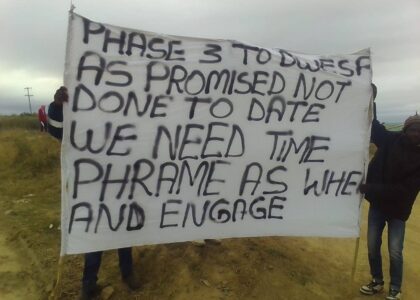 PHASE 3 TO DWESA
AS PROMISED NOT
DONE TO DATE
WE NEED TIME
PHRAME AS WHEN
AND ENGAGE